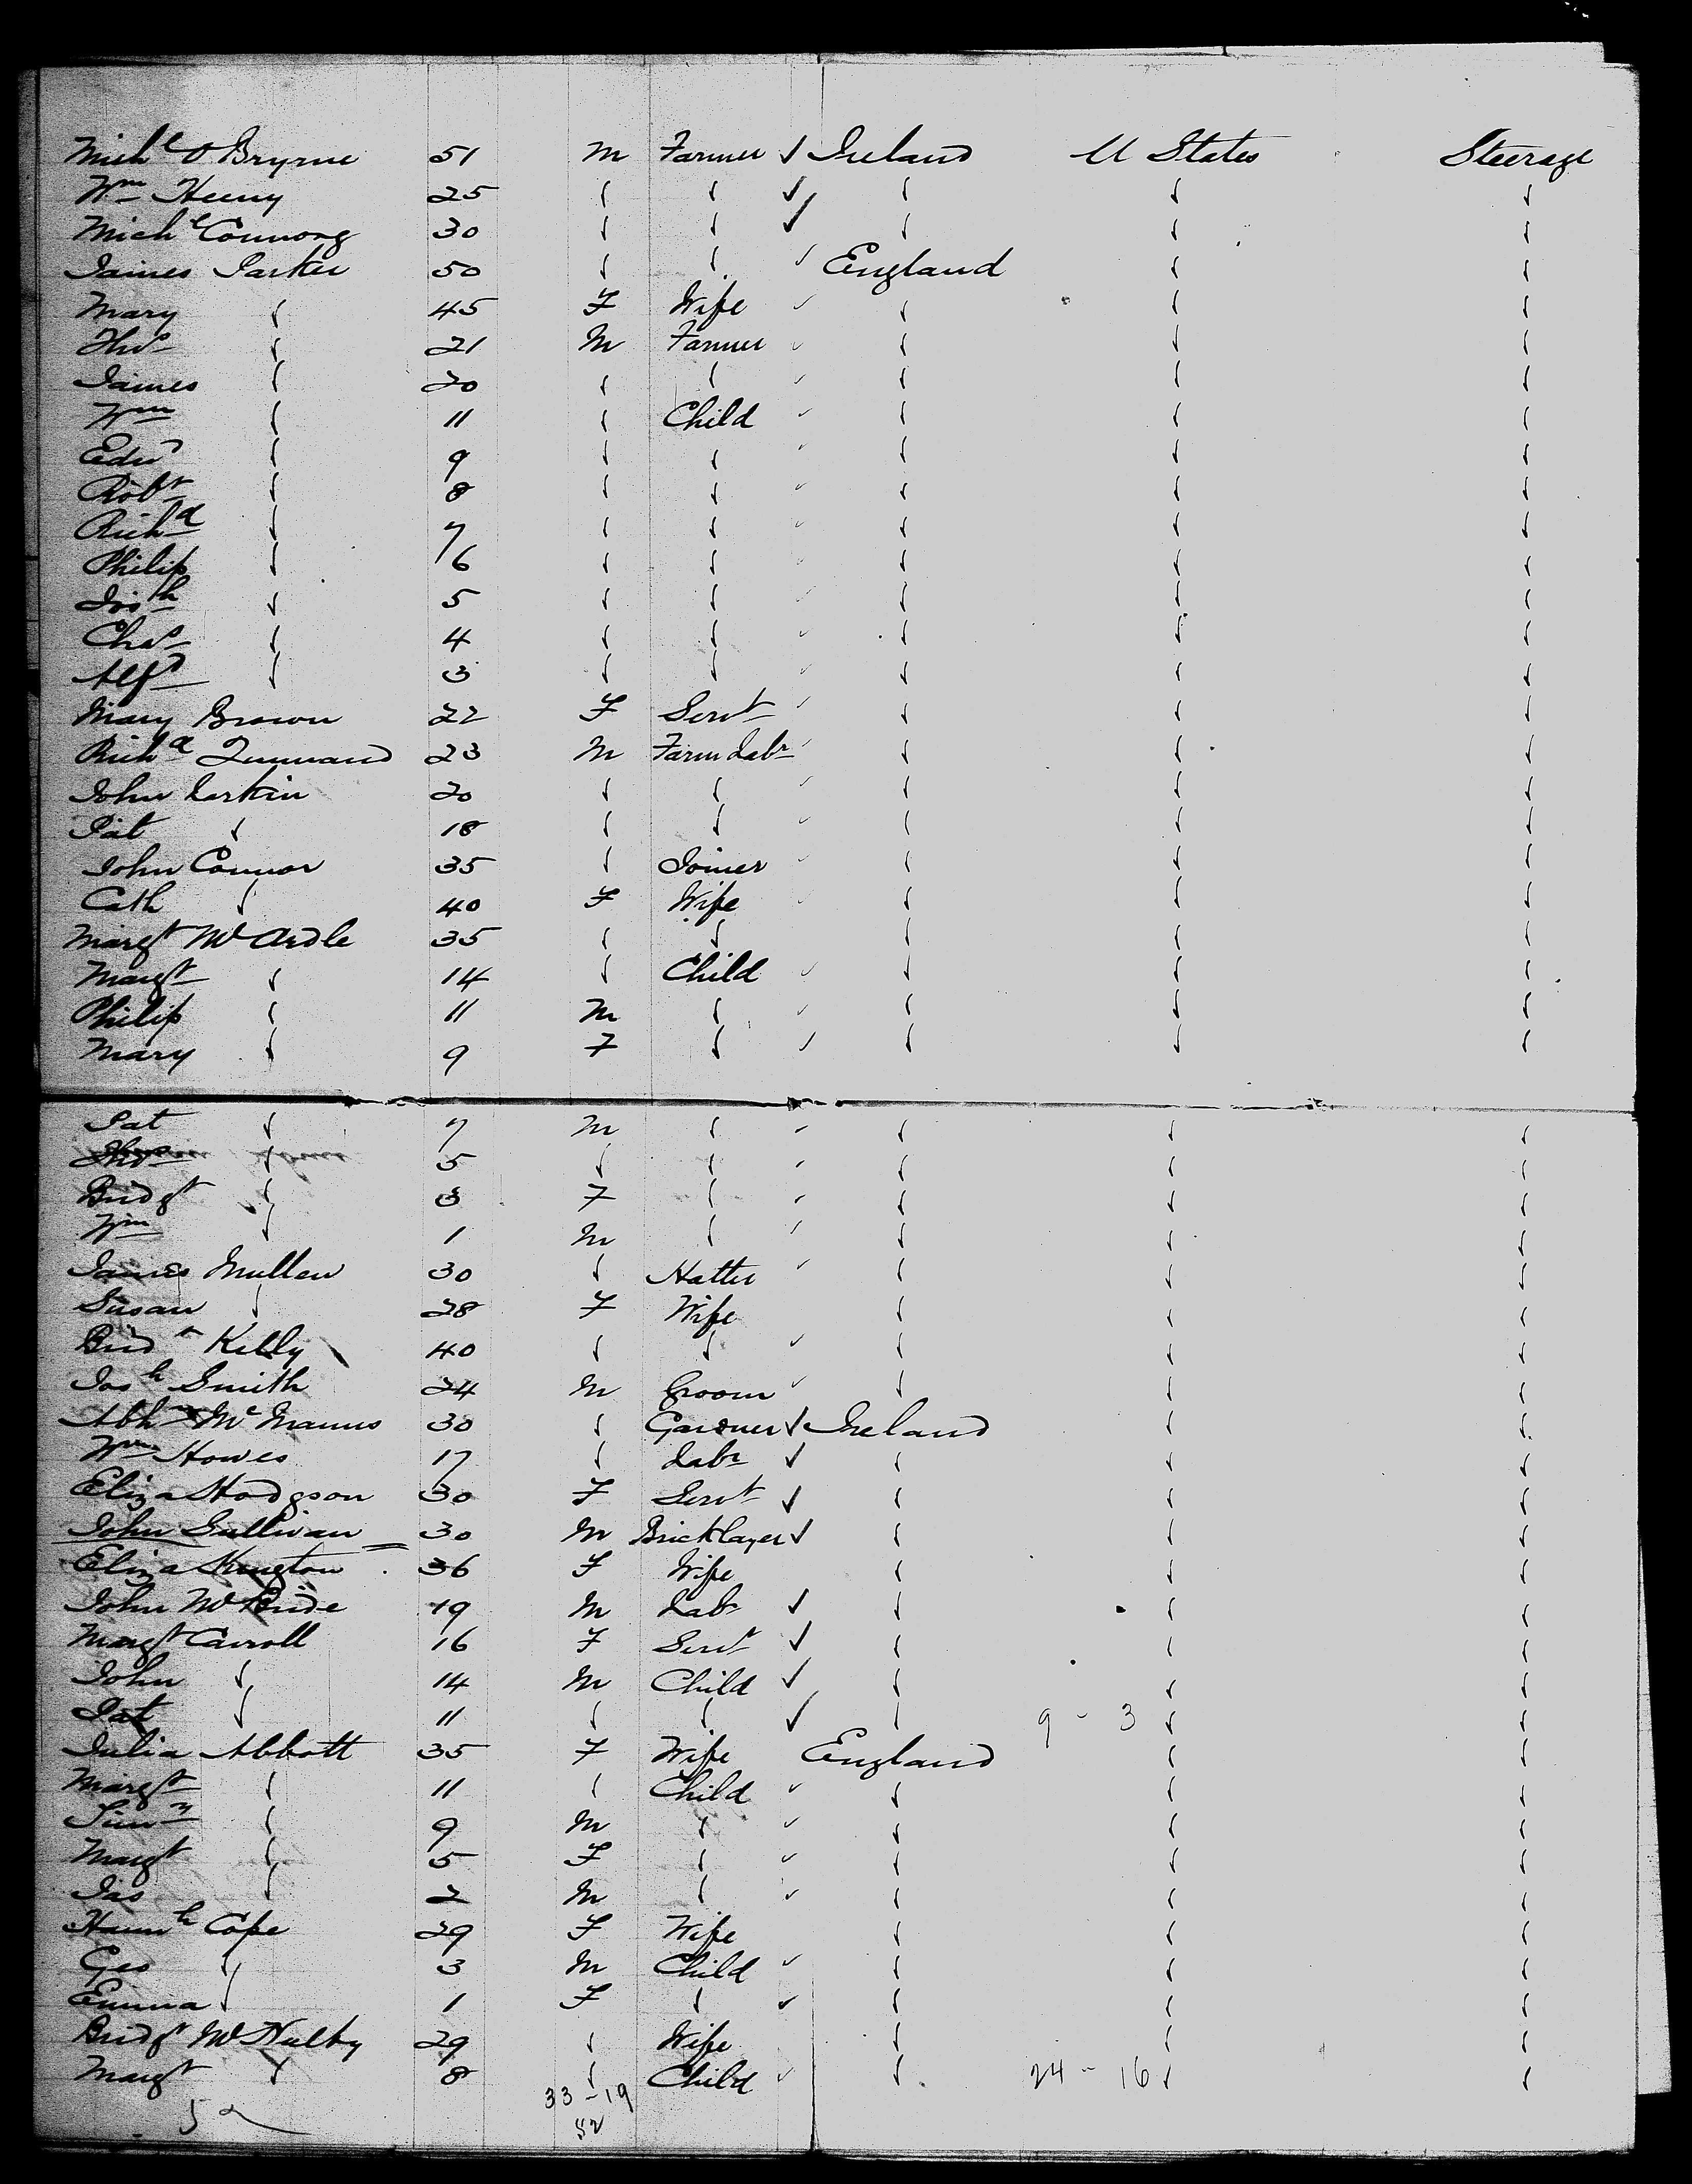 Michl O Bryrne 51 M Farmer ✓ Ireland U States Steerage
Wm Heeny 25 " " ✓ " " "
Michl Connors 30 " " ✓ " " "
James Parker 50 " " ✓ England " "
Mary " 45 F Wife ✓ " " "
Thos " 21 M Farmer ✓ " " "
James " 20 " " ✓ " " "
Wm " 11 " Child ✓ " " "
Edwd " 9 " " " " "
Robt " 8 " " ✓ " " "
Richd " 7 " " ✓ " " "
Philip " 6 " " ✓ " " "
Josh " 5 " " ✓ " " "
Chas " 4 " " ✓ " " "
Alfd " 3 " " ✓ " " "
Mary Brown 22 F Servt ✓ " " "
Richd 23 M Farm Labr ✓ " " "
John Larkin 20 " " ✓ " " "
Pat " 18 " " ✓ " " "
John Connor 35 " Joiner ✓ " " "
Cath " 40 F Wife ✓ " " "
Margt McArdle 35 " " " " "
Margt " 14 " Child ✓ " " "
Philip " 11 M " ✓ " " "
Mary " 9 F " ✓ " " "
Pat " 7 M " ✓ " " "
Thos " 5 " " ✓ " " "
Bridgt " 3 F " ✓ " " "
Wm " 1 M " ✓ " " "
James Mullen 30 " Hatter ✓ " " "
Susan " 28 F Wife " " "
Bridt Kelly 40 " " ✓ " " "
Josh Smith 24 M Groom ✓ " " "
Abhm McManus 30 " Gardner ✓ Ireland " "
Wm Howes 17 " Labr ✓ " " "
Eliza Hodgson 30 F Servt ✓ " " "
John Sullivan 30 M Bricklayer ✓ " " "
Eliza Kington 36 F Wife " " "
John McBride 19 M Labr ✓ " " "
Margt Carroll 16 F Servt ✓ " " "
John " 14 M Child ✓ " " "
Pat " 11 " " ✓ " 9 - 3 " "
Julia Abbott 35 F Wife England " "
Margt " 11 " Child ✓ " " "
" 9 M " ✓ " " "
Margt " 5 F " ✓ " " "
Jas " 2 M " ✓ " " "
Hannh Cope 29 F Wife " " "
Geo " 3 M Child ✓ " " "
Emma " 1 F " ✓ " " "
Bridgt McNulty 29 " Wife " " "
Margt " 8 " Child ✓ " 24 - 16 " "
52 33 - 19
52